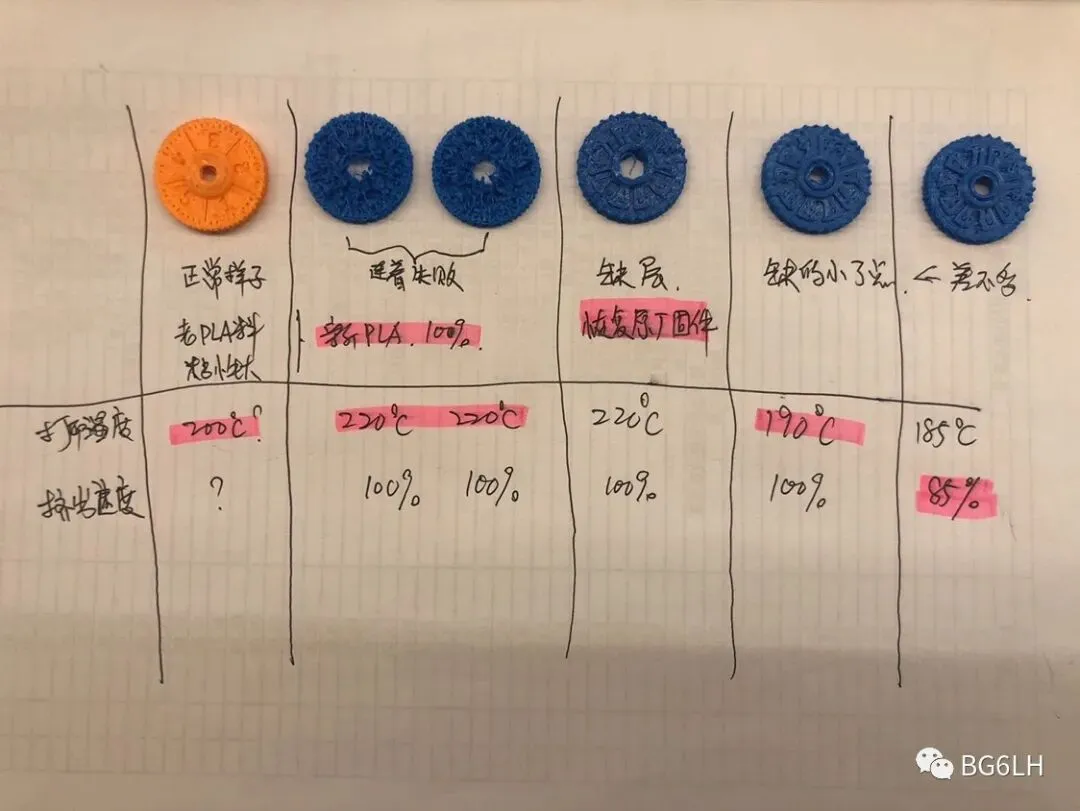 正常样子
老PLA料
粘性大
连着失败
新PLA. 100%.
缺层.
恢复原厂固件
缺的小了点.
← 差不多.
打印温度 200℃? 220℃ 220℃ 220℃ 190℃ 185℃
挤出速度 ? 100% 100% 100% 100% 85%
BG6LH